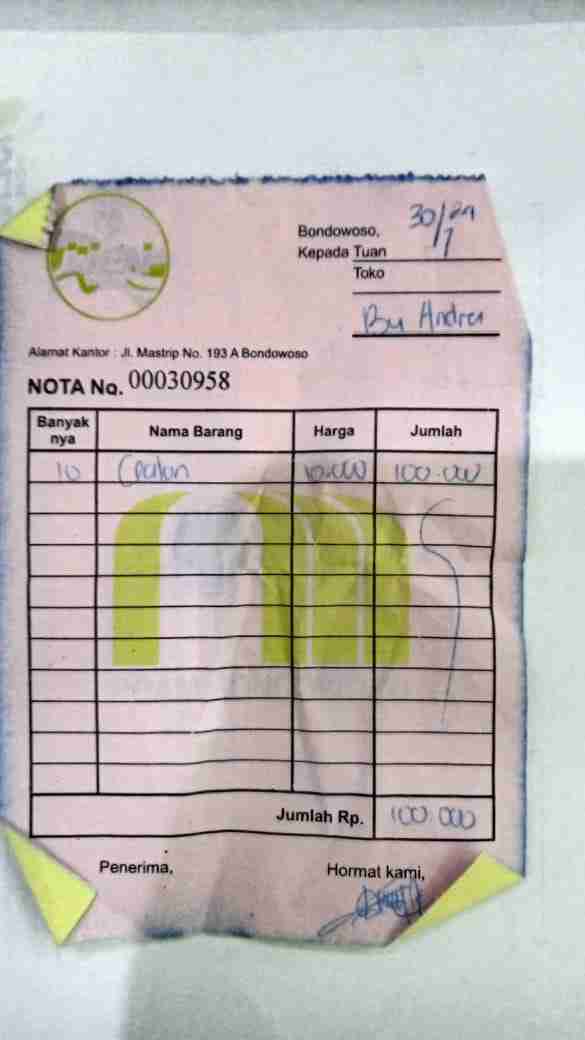 Bondowoso, 30/7 24
Kepada Tuan
Toko
Bu Andre
Alamat Kantor : Jl. Mastrip No. 193 A Bondowoso
NOTA No. 00030958
Banyak nya Nama Barang Harga Jumlah
10 10.000 100.000
Jumlah Rp. 100.000
Penerima, Hormat kami,